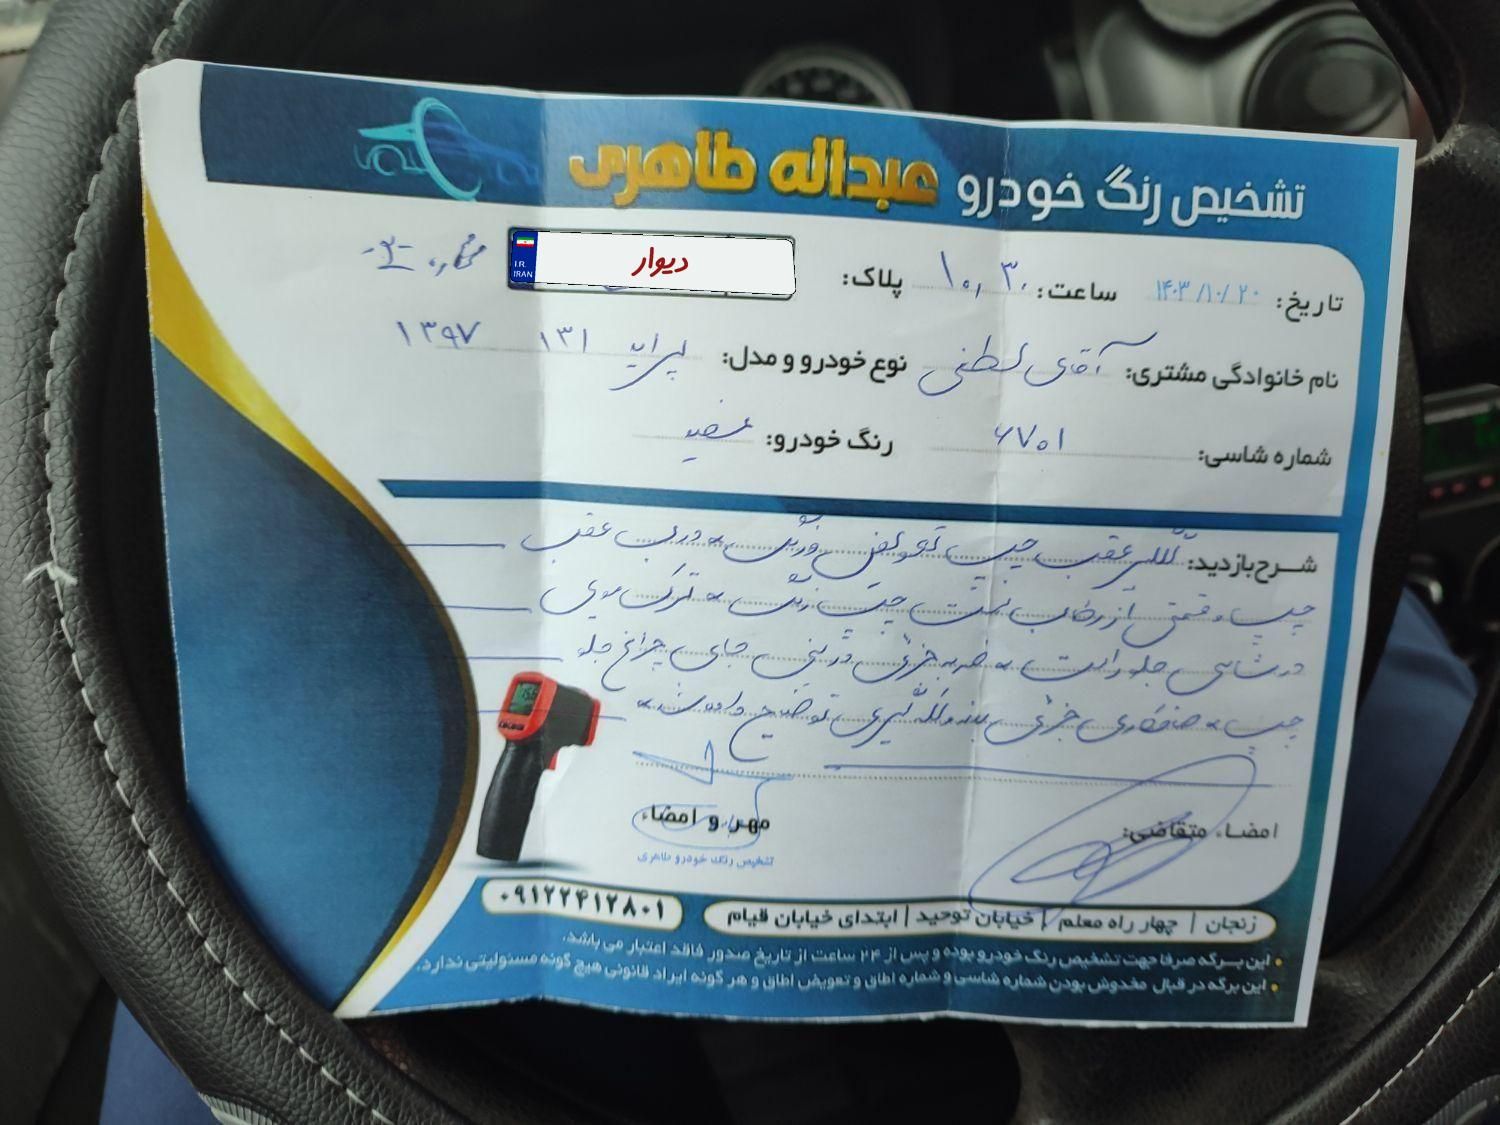 تشخیص رنگ خودرو عبداله طاهری
تاریخ: ۱۴۰۳/۱۰/۲۰ ساعت: ۱۰٫۳۰ پلاک: I.R. IRAN دیوار
نام خانوادگی مشتری: آقای لطفی نوع خودرو و مدل: پراید ۱۳۱ ۱۳۹۷
شماره شاسی: ۶۷۰۱ رنگ خودرو: سفید
شرح بازدید: گلگیر عقب چپ تعویض و رنگ - درب عقب
چپ و قسمتی از رکاب سمت چپ رنگ - ترک مویی
در شاسی جلو راست - ضربه جزئی در سینی جای چراغ جلو
چپ - صافکاری جزئی بند گلگیری توضیح داده شد -
امضاء متقاضی: مهر و امضاء
تشخیص رنگ خودرو طاهری
زنجان | چهار راه معلم | خیابان توحید | ابتدای خیابان قیام ۰۹۱۲۲۴۱۲۸۰۱
• این برگه صرفا جهت تشخیص رنگ خودرو بوده و پس از ۲۴ ساعت از تاریخ صدور فاقد اعتبار می باشد.
• این برگه در قبال مخدوش بودن شماره شاسی و شماره اطاق و تعویض اطاق و هر گونه ایراد قانونی هیچ گونه مسئولیتی ندارد.